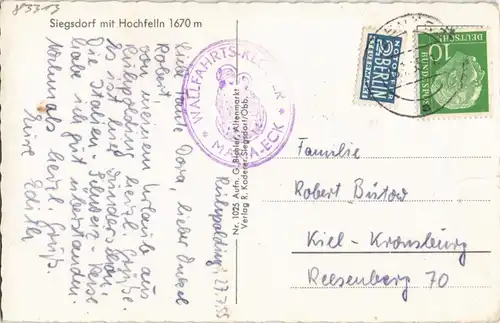 83313
Siegsdorf mit Hochfelln 1670 m
Ruhpolding, 27.7.55
Liebe Tante Dora, lieber Onkel
Robert!
Von meinem Urlaub aus
Ruhpolding herzl. Grüße.
Es ist hier wunderschön.
Die Italien-Schweiz-Reise
habe ich gut überstanden.
Nochmals herzl. Grüße
Eure Edith
WALLFAHRTS-KLOSTER
* MARIA-ECK *
Nr. 1025 Aufn. G. Bichler, Altenmarkt
Verlag R. Koderer, Siegsdorf/Obb.
2 NOTOPFER
BERLIN
STEUERMARKE
10
DEUTSCHE
BUNDESPOST
Familie
Robert Bütow
Kiel-Kronsburg
Reesenberg 70